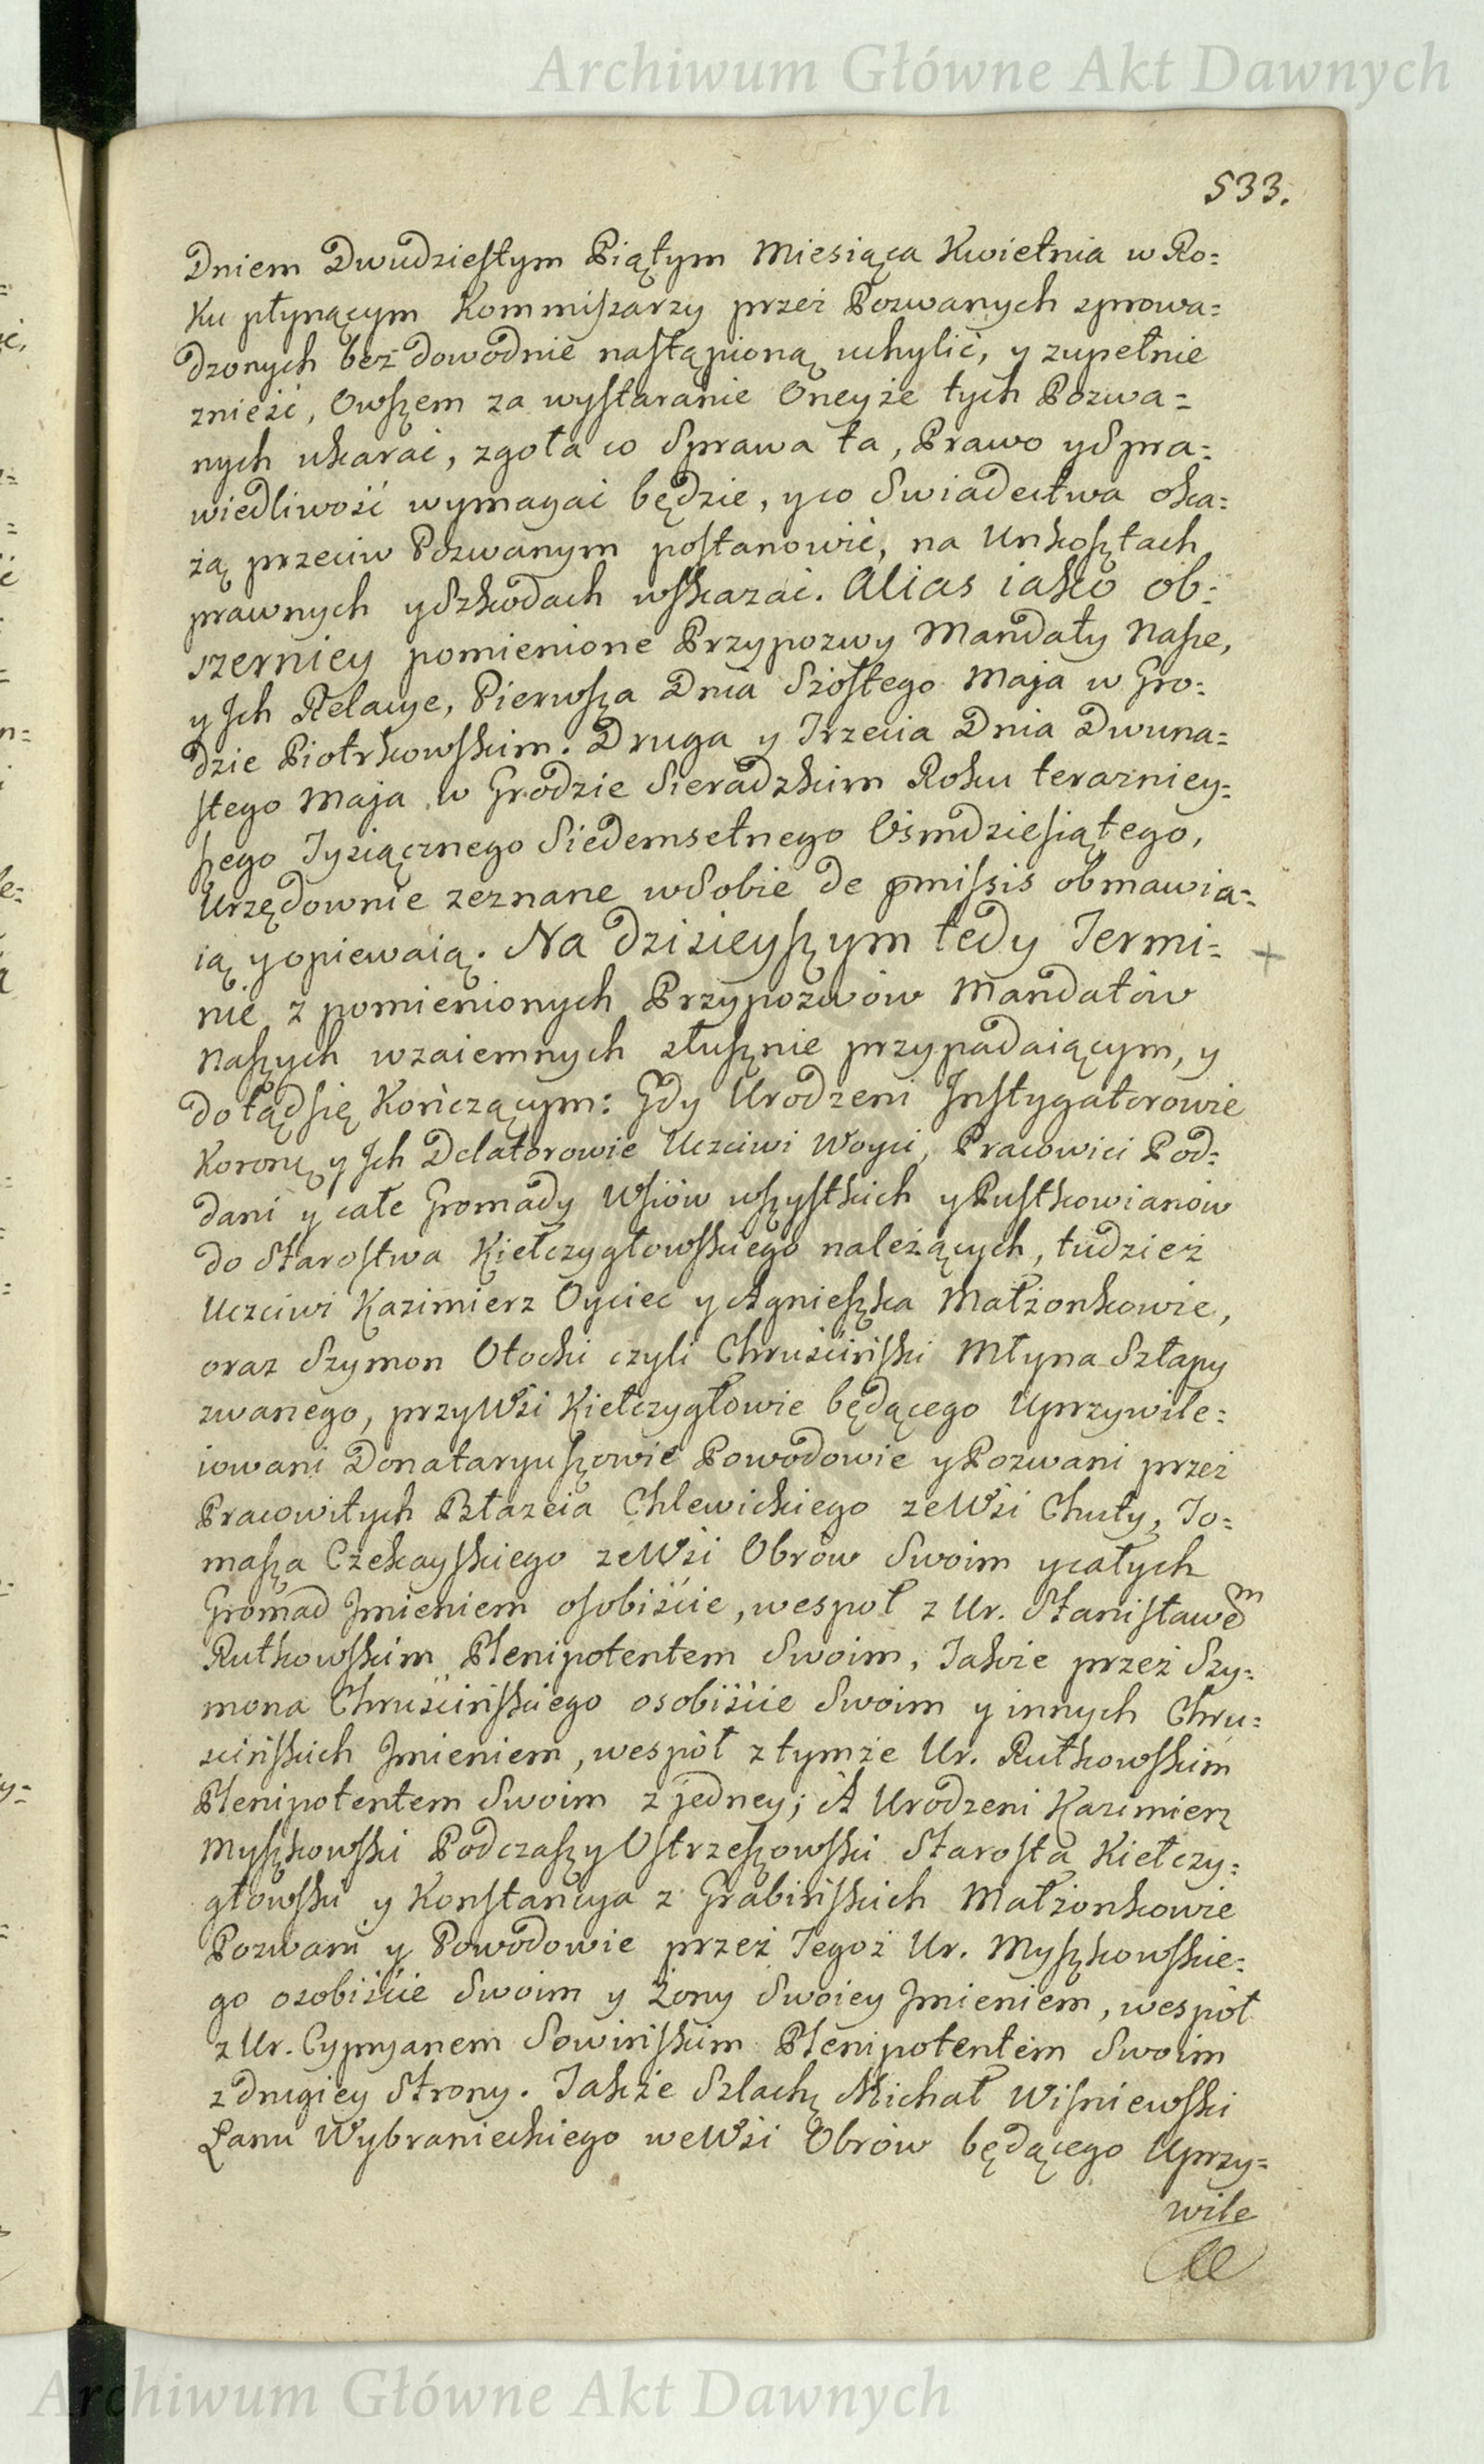 Archiwum Główne Akt Dawnych
533.
Dniem Dwudziestym Piątym Miesiąca Kwietnia w Ro=
ku płynącym Kommissarzy przez Pozwanych sprowa=
dzonych bez dowodnie nastąpioną uchylić, y zupełnie
znieść, Owszem za wystaranie Oneyże tych Pozwa=
nych ukarać, zgoła co Sprawa ta, Prawo y Spra=
wiedliwość wymagać będzie, y co Swiadectwa oka=
żą przeciw Pozwanym postanowić, na Unkosztach
prawnych y Szkodach wskazać. Alias iako ob=
szerniey pomienione Przypozwy Mandaty Nasze,
y Ich Relacye, Pierwsza Dnia Szóstego Maja w Gro=
dzie Piotrkowskim. Druga y Trzecia Dnia Dwuna=
stego Maja w Grodzie Sieradzkim Roku terazniey=
szego Tysiącznego Siedemsetnego Osmdziesiątego,
Urzędownie zeznane w Sobie de pmissis obmawia=
ią y opiewaią. Na dzisieyszym tedy Termi= +
nie z pomienionych Przypozwów Mandatów
Naszych wzaiemnych słusznie przypadaiącym, y
dotąd się Kończącym: Gdy Urodzeni Instygatorowie
Koronę y Ich Delatorowie Uczciwi Woyci, Pracowici Pod=
dani y całe Gromady Wsiów wszystkich y Pustkowianów
do Starostwa Kiełczygłowskiego należących, tudzież
Uczciwi Kazimierz Oyciec y Agnieszka Małżonkowie,
oraz Szymon Otocki czyli Chruściński Młyna Szłapy
zwanego, przy Wsi Kiełczygłowie będącego Uprzywile=
iowani Donataryuszowie Powodowie y Pozwani przez
Pracowitych Błazeia Chlewickiego ze Wsi Chuty, To=
masza Czekayskiego ze Wsi Obrów Swoim y całych
Gromad Imieniem osobiście, wespoł z Ur. Stanisławem
Rutkowskim Plenipotentem Swoim, Także przez Szy=
mona Chruścińskiego osobiście Swoim y innych Chru=
scińskich Imieniem, wespół z tymże Ur. Rutkowskim
Plenipotentem Swoim z jedney; A Urodzeni Kazimierz
Myszkowski Podczaszy Ostrzeszowski Starosta Kiełczy=
głowski y Konstancya z Grabińskich Małżonkowie
Pozwani y Powodowie przez Tegoż Ur. Myszkowskie=
go osobiście Swoim y żony Swoiey Imieniem, wespół
z Ur. Cypryanem Sowińskim Plenipotentem Swoim
z drugiey Strony. Także Szlachę Michał Wisniewski
Łanu Wybranieckiego we Wsi Obrów będącego Uprzy=
wile
Archiwum Główne Akt Dawnych